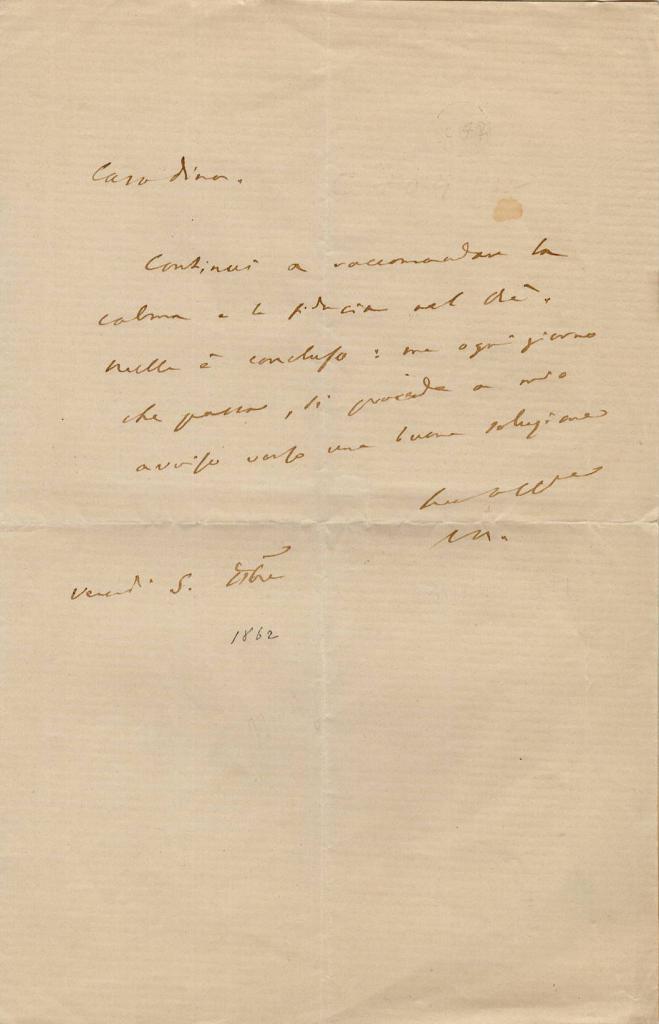 Caro Dina.
Continui a raccomandare la
calma e la fiducia nel Re.
Nulla è concluso: ma ogni giorno
che passa, si procede a mio
avviso verso una buona soluzione
Venerdì 5. 7bre
1862